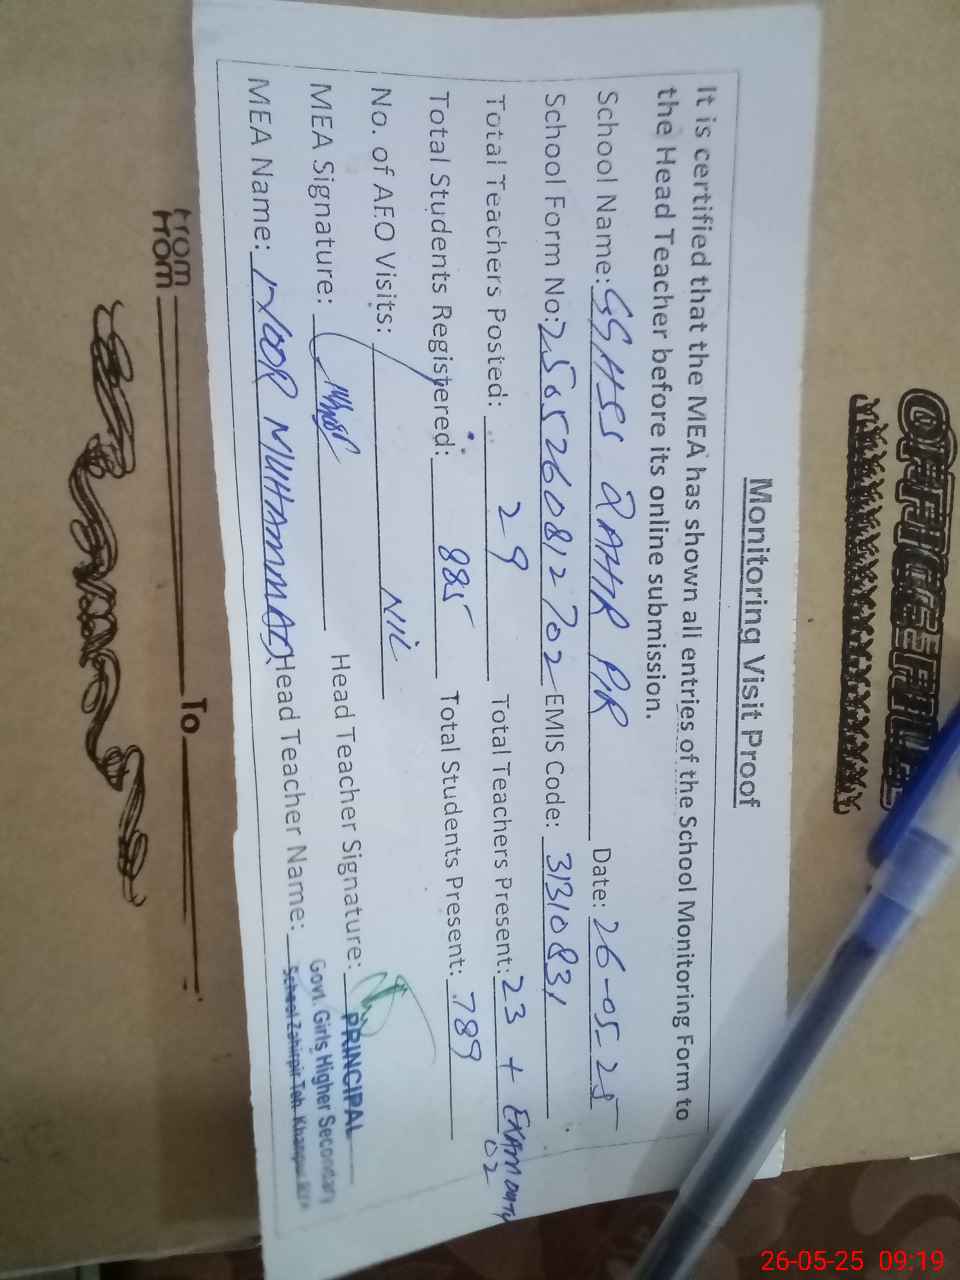 OFFICE FILE
Monitoring Visit Proof
It is certified that the MEA has shown all entries of the School Monitoring Form to
the Head Teacher before its online submission.
School Name: GGHSS ZAHIR PIR Date: 26-05-25
School Form No: 2505260812702 EMIS Code: 31310831
Total Teachers Posted: 29 Total Teachers Present: 23 + EXAM DUTY 02
Total Students Registered: 885 Total Students Present: 789
No. of AEO Visits: NIL
MEA Signature: Head Teacher Signature:
MEA Name: NOOR MUHAMMAD Head Teacher Name:
PRINCIPAL
Govt. Girls Higher Secondary
School Zahirpir Teh. Khanpur
From To
26-05-25 09:19